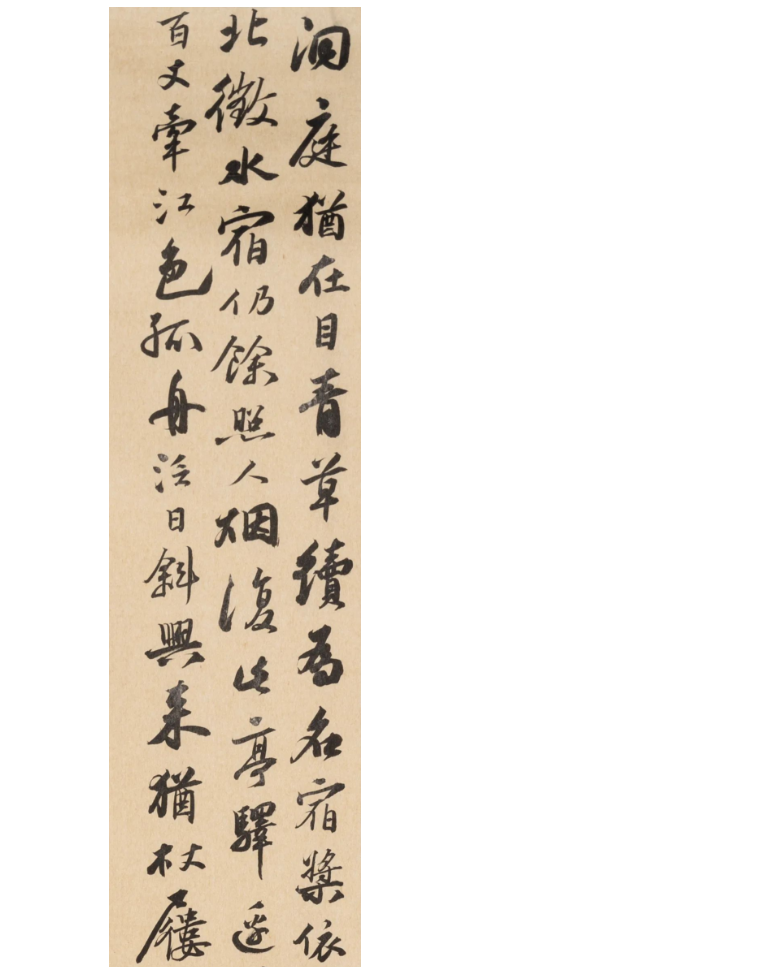 洞庭猶在目青草續為名宿槳依
北徵水宿仍餘照人烟復此亭驛邊
百丈牽江色孤舟泛日斜興來猶杖屨